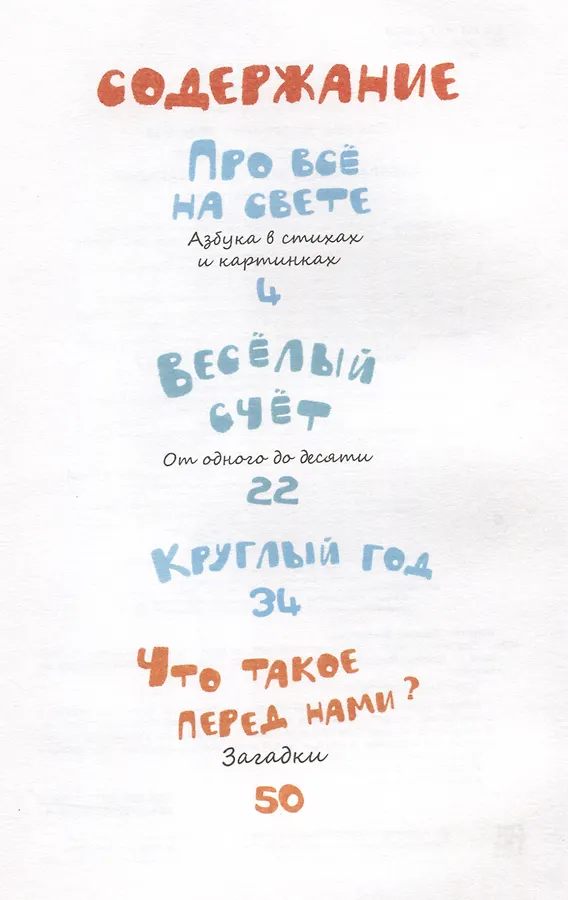 СОДЕРЖАНИЕ
ПРО ВСЁ
НА СВЕТЕ
Азбука в стихах
и картинках
4
ВЕСЁЛЫЙ
СЧЁТ
От одного до десяти
22
КРУГЛЫЙ ГОД
34
ЧТО ТАКОЕ
ПЕРЕД НАМИ?
Загадки
50